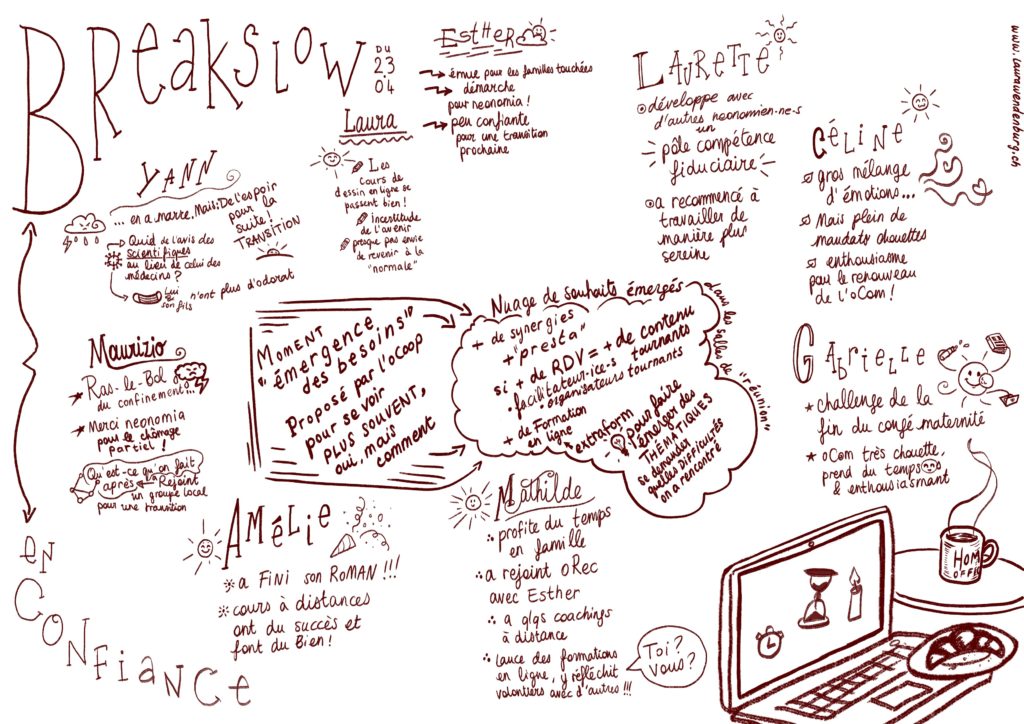 BREakSLOW
DU
23
04
EN
CONFIANCE
ESTHER
émue pour les familles touchées
démarche
pour neonomia !
peu confiante
pour une transition
prochaine
LAURETTE
développe avec
d'autres neonomien-ne-s
un
pôle compétence
fiduciaire
a recommencé à
travailler de
manière plus
sereine
www.laurawendenburg.ch
CÉLINE
gros mélange
d'émotions...
Mais plein de
mandats chouettes
enthousiasme
pour le renouveau
de l'oCom !
Laura
Les
cours de
dessin en ligne se
passent bien !
incertitude
de l'avenir
presque pas envie
de revenir à la
"normale"
YANN
... en a marre. Mais: De l'espoir
pour la
suite !
TRANSITION
Quid de l'avis des
scientifiques
au lieu de celui des
médecins ?
Lui
& son fils
n'ont plus d'odorat
Maurizio
Ras-le-Bol
du confinement...
Merci neonomia
pour le chômage
partiel !
Qu'est-ce qu'on fait
après
Rejoint
un groupe local
pour une transition
MOMENT
"émergence
des besoins"
Proposé par l'oCoop
pour se voir
PLUS SOUVENT,
oui, mais
comment
Nuage de souhaits émergés
dans les salles de "réunion"
+ de synergies
+ "presta"
si + de RDV = + de contenu
• facilitateur-ice-s tournants
• organisateurs tournants
+ de Formation
en ligne
extraform
pour faire
émerger des
THÉMATIQUES
se demander
quelles DIFFICULTÉS
on a rencontré
GABRIELLE
challenge de la
fin du congé maternité
oCom très chouette,
prend du temps
& enthousiasmant
AMÉLIE
a FINI son ROMAN !!!
cours à distances
ont du succès et
font du Bien !
Mathilde
profite du temps
en famille
a rejoint oRec
avec Esther
a qlqs coachings
à distance
lance des formations
en ligne, y réfléchit
volontiers avec d'autres !!!
Toi ?
Vous ?
HOME
OFFIC